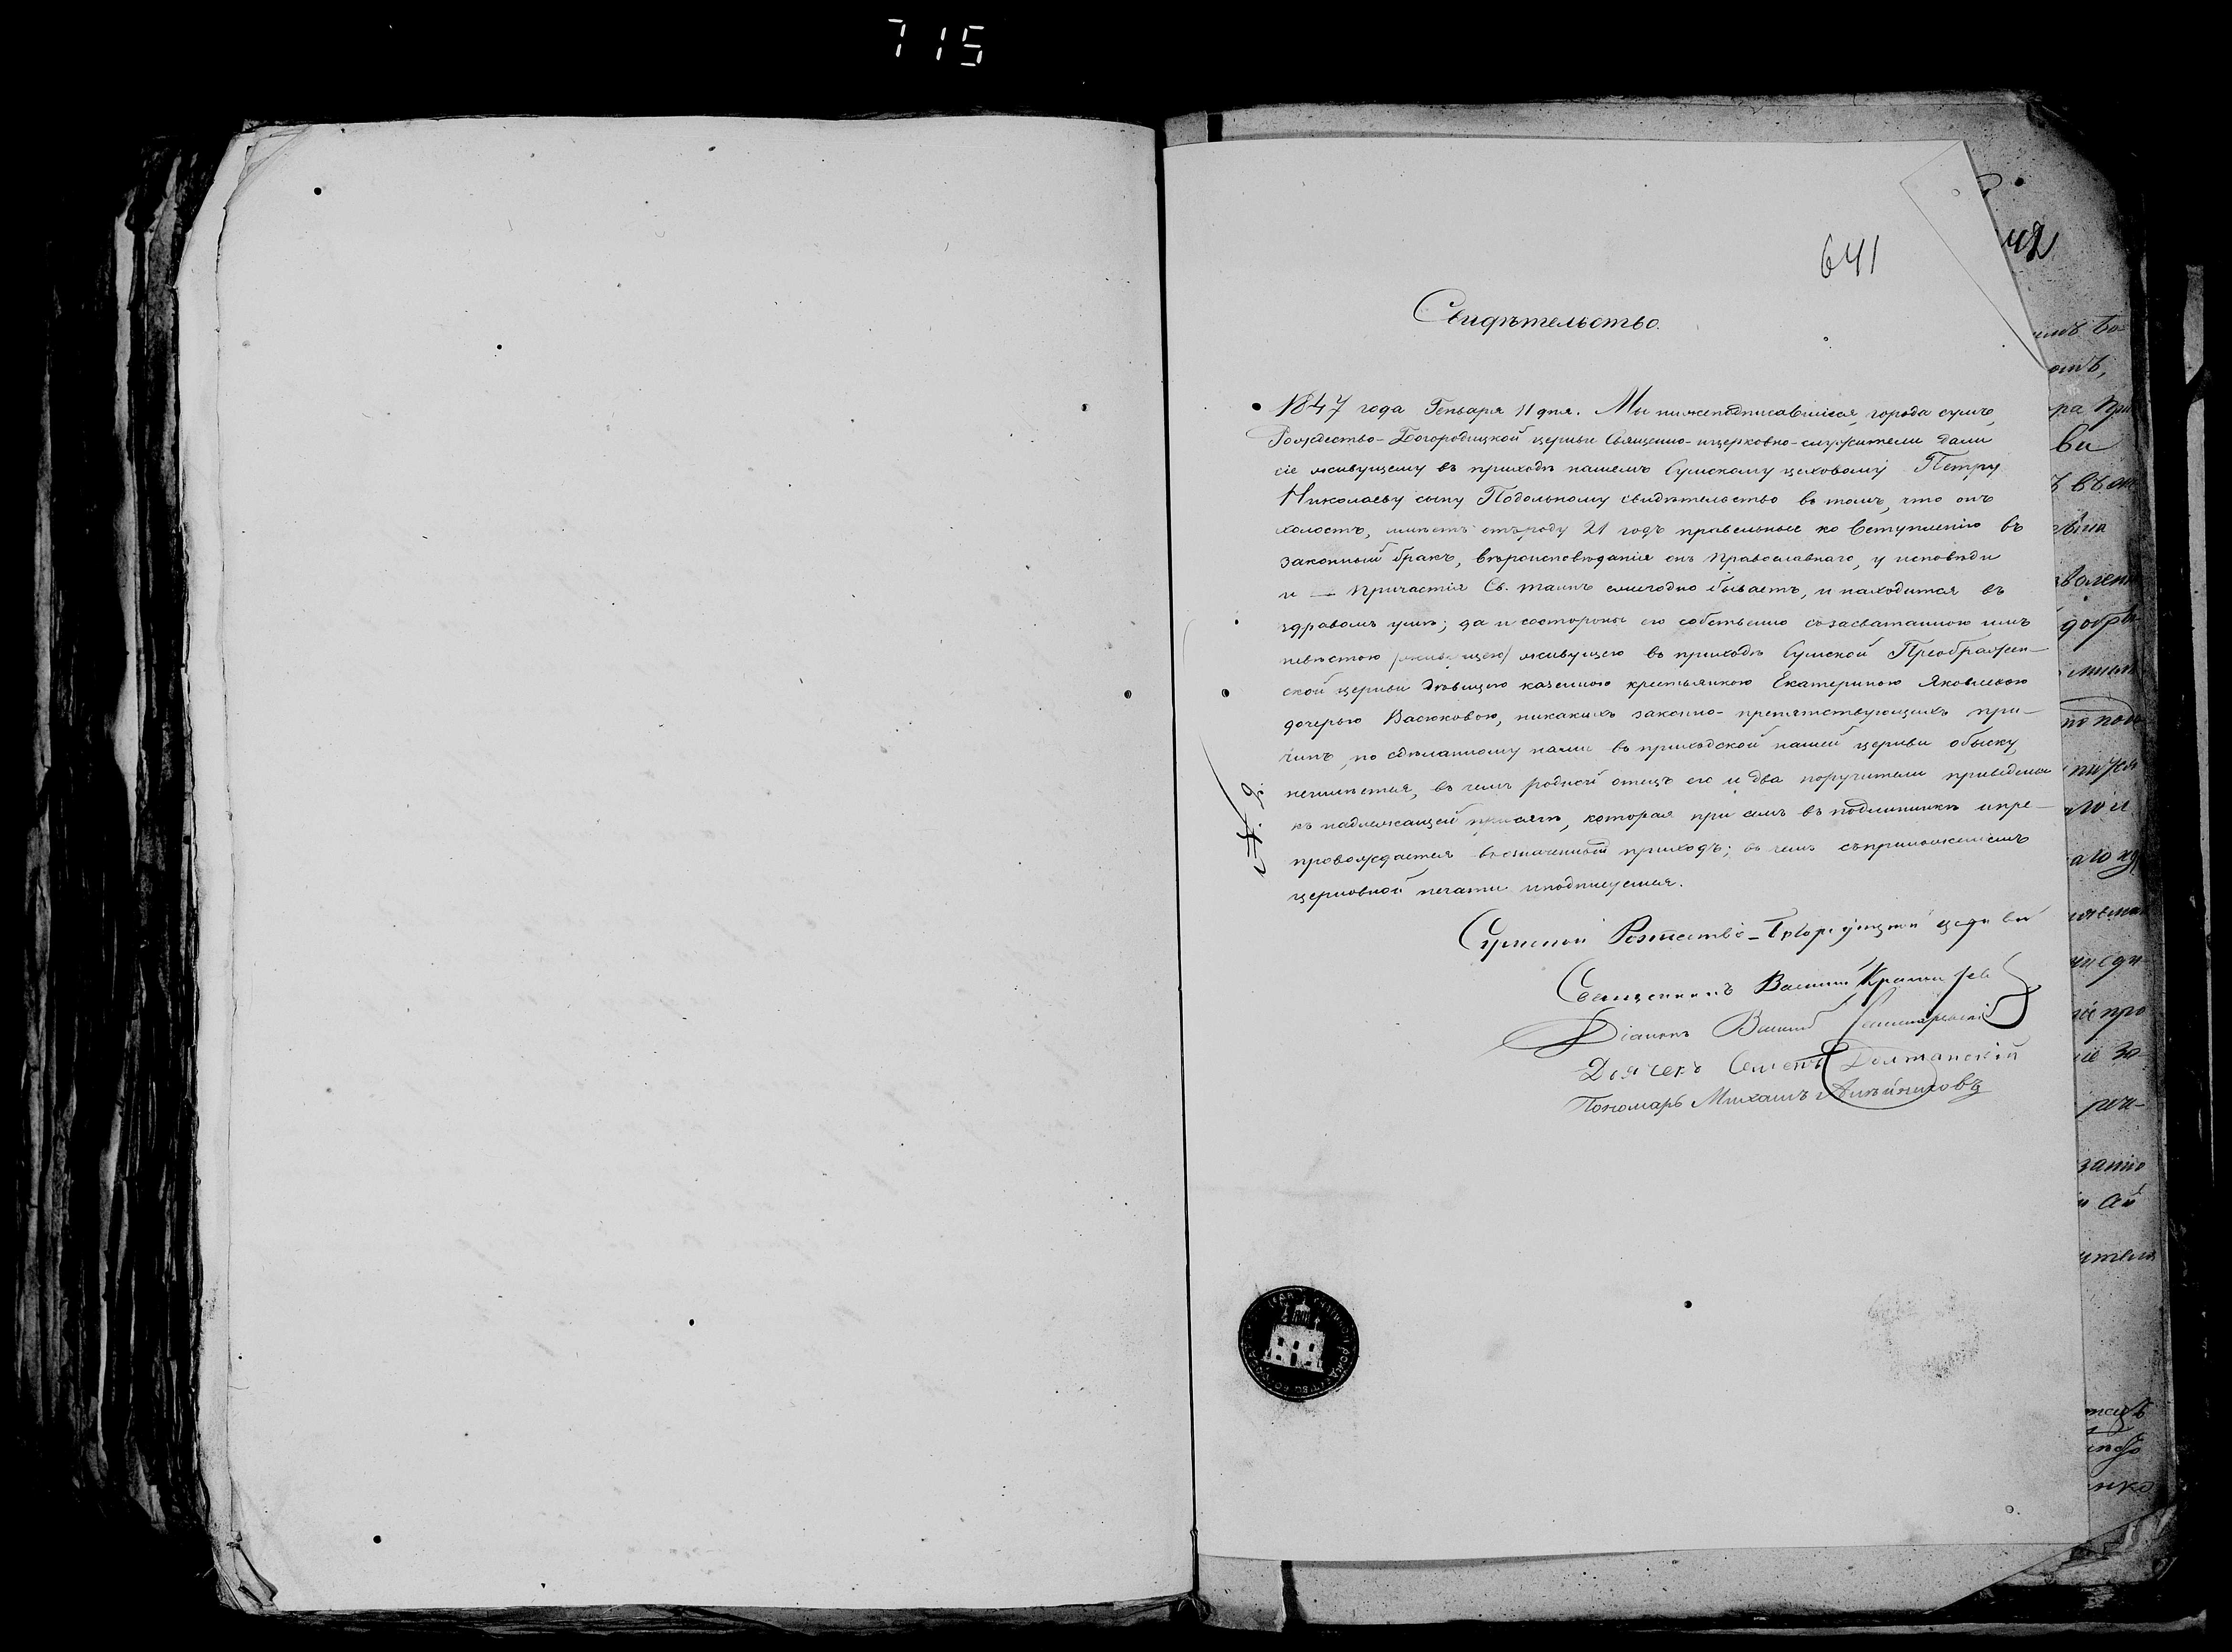 715
641
42
Свидѣтельство.
1847 года Генваря 11 дня. Мы нижеподписавшіеся, города сумъ,
Рождество-Богородицкой церкви Священно-ицерковно-служители дали
сіе живущему въ приходѣ нашемъ Сумскому цеховому Петру
Николаеву сыну Подольному свидѣтельство въ томъ, что онъ
холостъ, имѣетъ отъроду 21 годъ правельные ко вступленію въ
законный бракъ, вѣроисповѣданія онъ Православнаго, у исповѣди
и — Причастія Св. таинъ ежегодно бываетъ, и находится въ
здравомъ умѣ; да и состороны его собственно созасватанною имъ
невѣстою /живущею/ живущею въ приходѣ Сумской Преображен-
ской церкви дѣвицею казенною крестьянкою Екатериною Яковлевою
дочерью Васюковою, никакихъ законно-препятствующихъ при-
чинъ, по сдѣланному нами въ приходской нашей церкви обыску
неимѣется, въ чемъ родной отецъ его и два поручители приведены
къ надлежащей присягѣ, которая при семъ въ подлинникѣ ипре-
провождается возначенный приходъ; въ чемъ съприложеніемъ
церковной печати иподписуемся.
№ 9.
Сумской Рождество-Богородицкой церкви
Священникъ Василій
Діаконъ
Дьячекъ Семенъ Долтанскій
Пономарь Михаилъ Алѣйниковъ